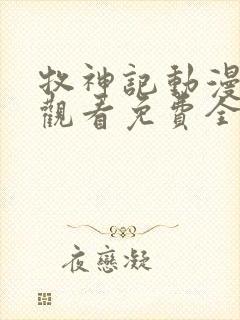 牧神記動漫
觀看免費全
夜戀凝